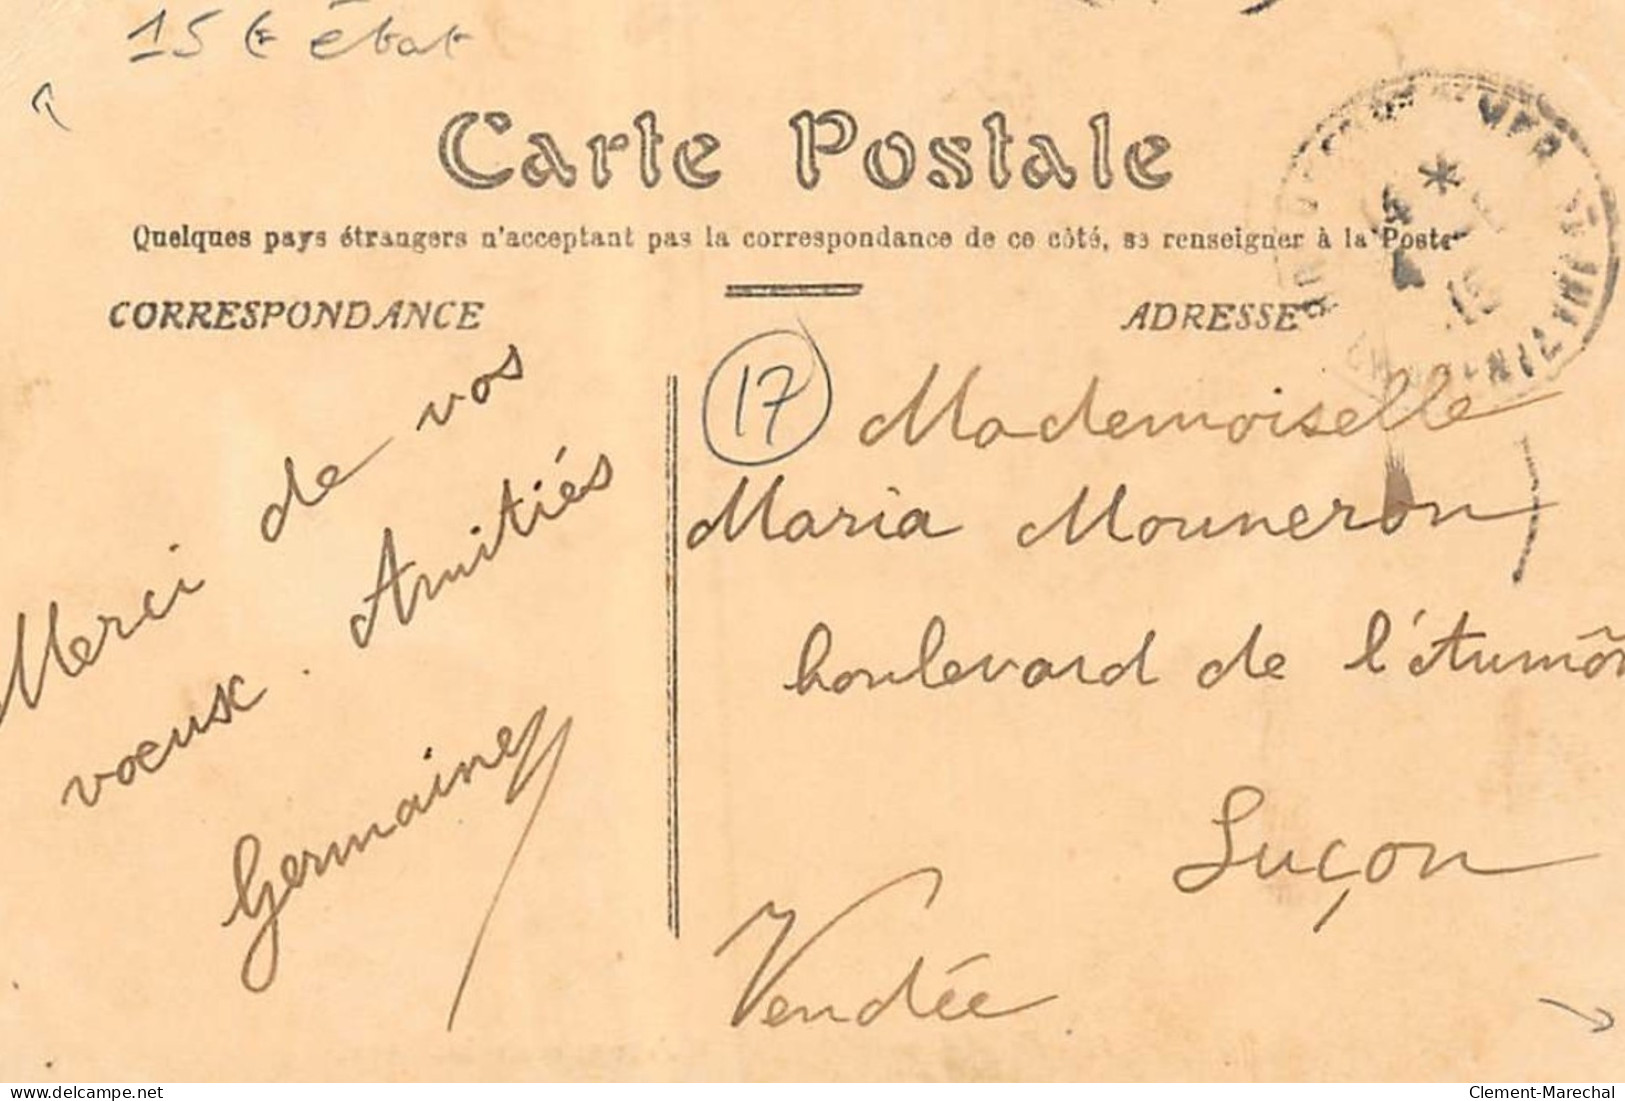 15 € état
Carte Postale
Quelques pays étrangers n'acceptant pas la correspondance de ce côté, se renseigner à la Poste
CORRESPONDANCE
ADRESSE
Merci de vos
voeux. Amitiés
Germaine
17
Mademoiselle
Maria Mouneron
boulevard de l'Aumô
Luçon
Vendée
delcampe.net
Clement-Marechal